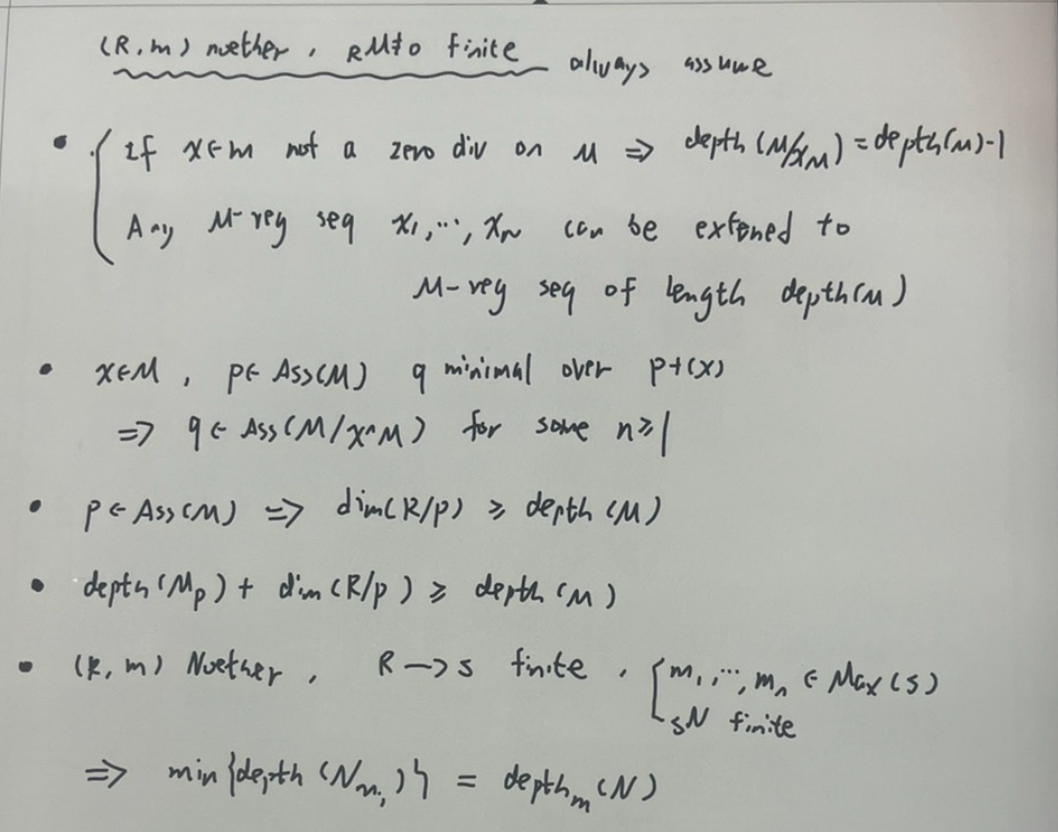 (R, m) nuether, RM≠0 finite always assume
• If x∈m not a zero div on M ⇒ depth(M/xM) = depth(M)-1
Any M-reg seq x1,⋯,xn can be extened to
M-reg seq of length depth(M)
• x∈M, p∈Ass(M) q minimal over p+(x)
⇒ q∈Ass(M/x^nM) for some n≥1
• p∈Ass(M) ⇒ dim(R/p) ≥ depth(M)
• depth(Mp) + dim(R/p) ≥ depth(M)
• (R, m) Nuether, R→S finite, { m1,⋯,mn ∈ Max(S)
SN finite
⇒ min{depth(Nmi)} = depthm(N)